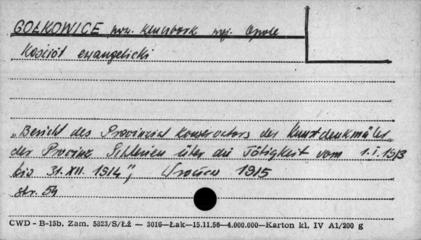 GOŁKOWICE pow. Kluczbork woj. Opole
Kościół ewangelicki
"Bericht des Provinzial Konservators der Kunstdenkmäler
der Provinz Schlesien über die Tätigkeit vom 1.I.1913
bis 31.XII.1914", 1915
str. 54
CWD - B-15b. Zam. 5823/S/ŁŻ — 3016—Łak—15.11.56—4.000.000—Karton kl. IV A1/200 g